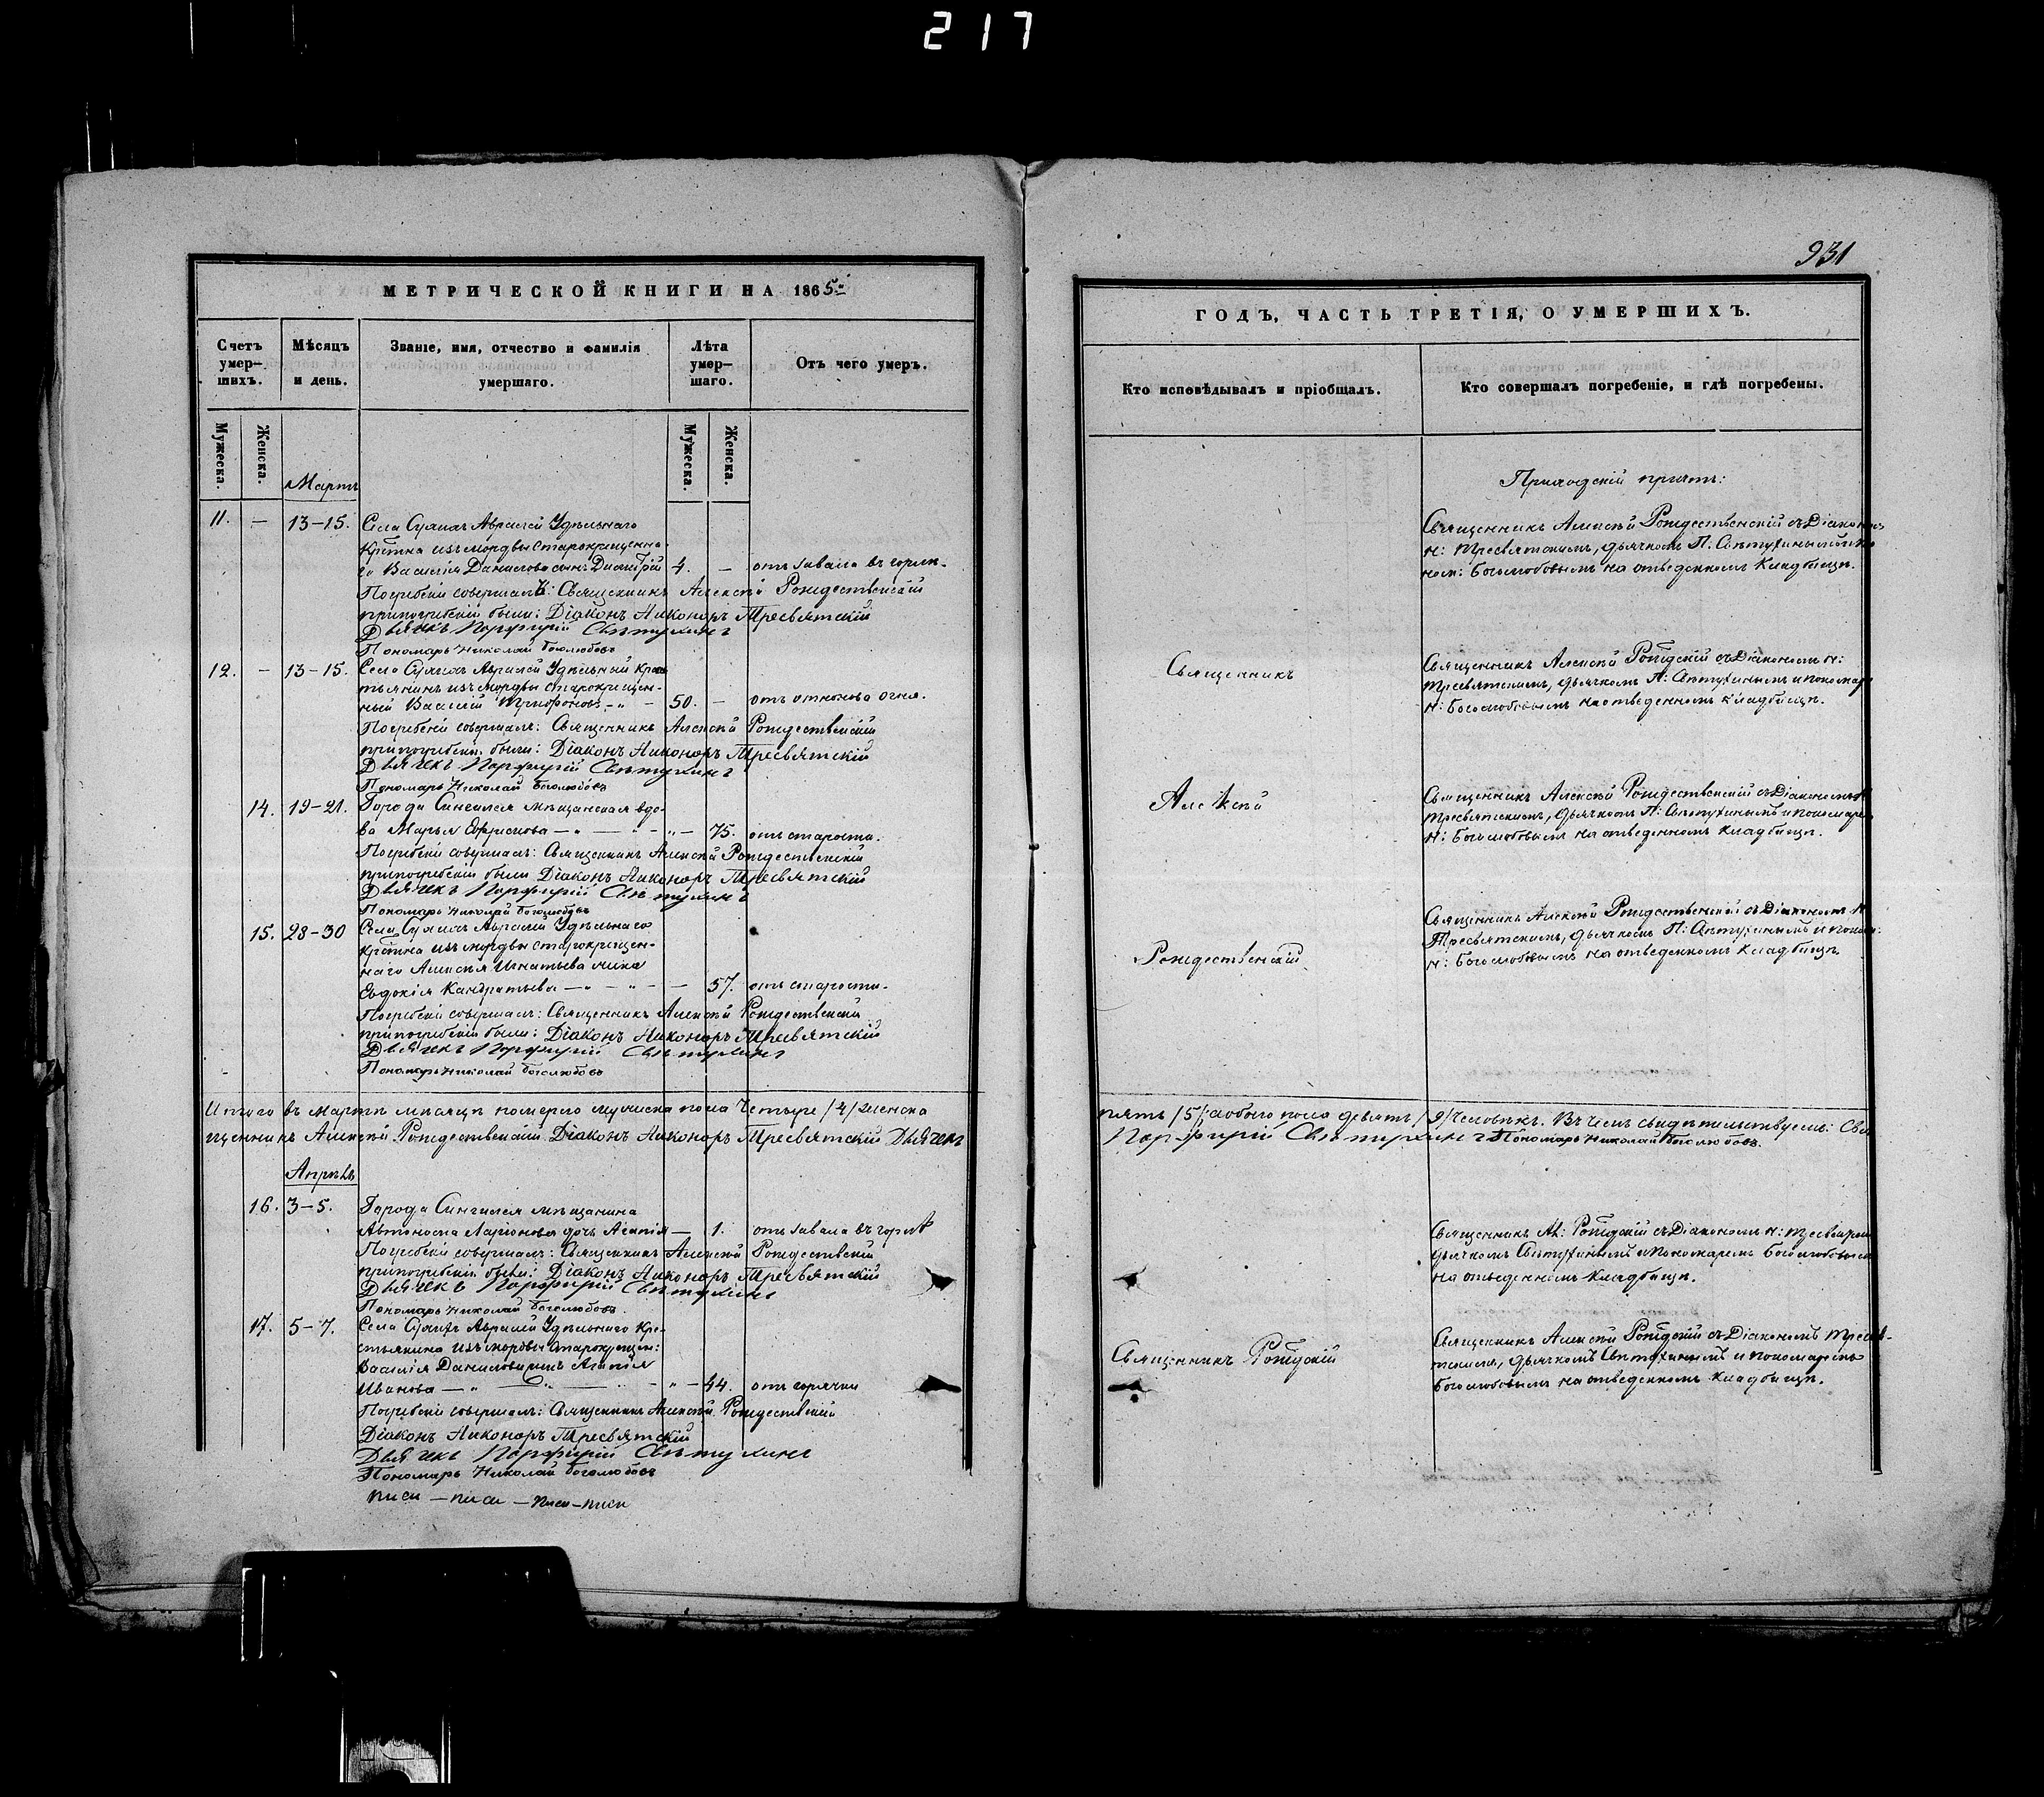 217
МЕТРИЧЕСКОЙ КНИГИ НА 1865:
Счетъ умер-шихъ.
Мѣсяцъ и день.
Званіе, имя, отчество и фамилія умершаго.
Лѣта умер-шаго.
Отъ чего умеръ.
Мужеска.
Женска.
Мужеска.
Женска.
Мартъ
11. — 13–15. Села Аврамей Удѣльнаго
Кртна изъ мордвы старокрещенна-
го Василія Данилова сынъ Дмитрій 4. — отъ завала въ горлѣ.
Погребеніе совершалъ: Священникъ Алексѣй Рождественскій
при погребеніи были: Діаконъ Никоноръ Тресвятскій
Дьячекъ Порфирій Свѣтухинъ
Пономарь Николай Боголюбовъ
12. — 13–15. Села Аврамей Удѣльный Крес-
тьянинъ изъ мордвы старокрещен-
ный Василій Трифоновъ — " — 50. — отъ антонова огня.
Погребеніе совершалъ: Священникъ Алексѣй Рождественскій
при погребеніи были: Діаконъ Никоноръ Тресвятскій
Дьячекъ Порфирій Свѣтухинъ
Пономарь Николай Боголюбовъ
14. 19–21. Города Сингилея мѣщанская вдо-
ва Марья — " — " — " — 75. отъ старости.
Погребеніе совершалъ: Священникъ Алексѣй Рождественскій
при погребеніи были Діаконъ Никоноръ Тресвятскій
Дьячекъ Порфирій Свѣтухинъ
Пономарь Николай Боголюбовъ
15. 28–30 Села Аврамей Удѣльнаго
Кртна изъ мордвы старокрещен-
наго Алексѣя Игнатьева жена
Евдокія Кандратьева — " — " — 57. отъ старости.
Погребеніе совершалъ: Священникъ Алексѣй Рождественскій
при погребеніи были: Діаконъ Никоноръ Тресвятскій
Дьячекъ Порфирій Свѣтухинъ
Пономарь Николай Боголюбовъ
Итого въ Мартѣ мѣсяцѣ померло мужеска пола Четыре /4/ женска
щенникъ Алексѣй Рождественскій Діаконъ Никоноръ Тресвятскій Дьячекъ
Апрѣль
16. 3–5. Города Сингилея мѣщанина
Автонома Ларіонова дочь Агапія — 1. отъ завала въ горлѣ
Погребеніе совершалъ: Священникъ Алексѣй Рождественскій
при погребеніи были: Діаконъ Никоноръ Тресвятскій
Дьячекъ Порфирій Свѣтухинъ
Пономарь Николай Боголюбовъ.
17. 5–7. Села Аврамей Удѣльнаго Кре-
стьянина изъ мордвы старокрещен:
Василія Данилова Агапія
Иванова — " — " — " — 44. отъ горячки
Погребеніе совершалъ: Священникъ Алексѣй Рождественскій
Діаконъ Никоноръ Тресвятскій
Дьячекъ Порфирій Свѣтухинъ
Пономарь Николай Боголюбовъ
931
ГОДЪ, ЧАСТЬ ТРЕТІЯ, О УМЕРШИХЪ.
Кто исповѣдывалъ и пріобщалъ.
Кто совершалъ погребеніе, и гдѣ погребены.
Приходскій причтъ:
Священникъ Алексѣй Рождественскій съ Діакономъ
Н: Тресвятскимъ, дьячкомъ П: Свѣтухинымъ и поно
Боголюбовымъ на отведенномъ кладбищѣ.
Священникъ
Священникъ Алексѣй Рождскій съ Діакономъ Н:
Тресвятскимъ, дьячкомъ П: Свѣтухинымъ и пономаре
Н: Боголюбовымъ на отведенномъ кладбищѣ.
Алексѣй
Священникъ Алексѣй Рождественскій съ Діакономъ Н
Тресвятскимъ, дьячкомъ П: Свѣтухинымъ и пономаре
Н: Боголюбовымъ на отведенномъ кладбищѣ.
Рождественскій
Священникъ Алексѣй Рождественскій съ Діакономъ Н
Тресвятскимъ, дьячкомъ П: Свѣтухинымъ и поном:
Н: Боголюбовымъ на отведенномъ кладбищѣ.
пять /5/; а обоего пола девять /9/ человѣкъ. Въ чемъ свидѣтельствуемъ: Свя
Порфирій Свѣтухинъ Пономарь Николай Боголюбовъ.
Священникъ Ал: Рождскій съ Діакономъ Н:
дьячкомъ Свѣтухинымъ и пономаремъ Боголюбовымъ
на отведенномъ кладбищѣ.
Священникъ Рождскій
Священникъ Алексѣй Рождскій съ Діакономъ Тресвя-
тскимъ, дьячкомъ Свѣтухинымъ и пономаремъ
Боголюбовымъ на отведенномъ кладбищѣ.